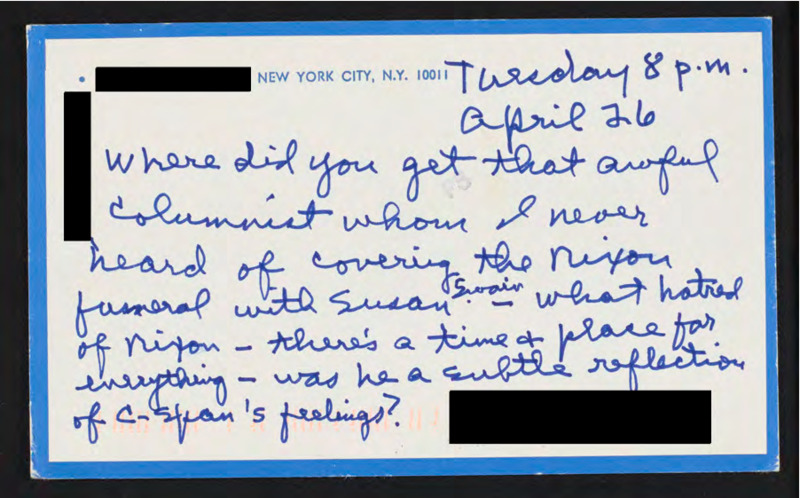 NEW YORK CITY, N.Y. 10011
Tuesday 8 p.m.
April 26
Where did you get that awful
columnist whom I never
heard of covering the Nixon
funeral with Susan Swain – what hatred
of Nixon – there's a time & place for
everything – was he a subtle reflection
of C-Span's feelings?